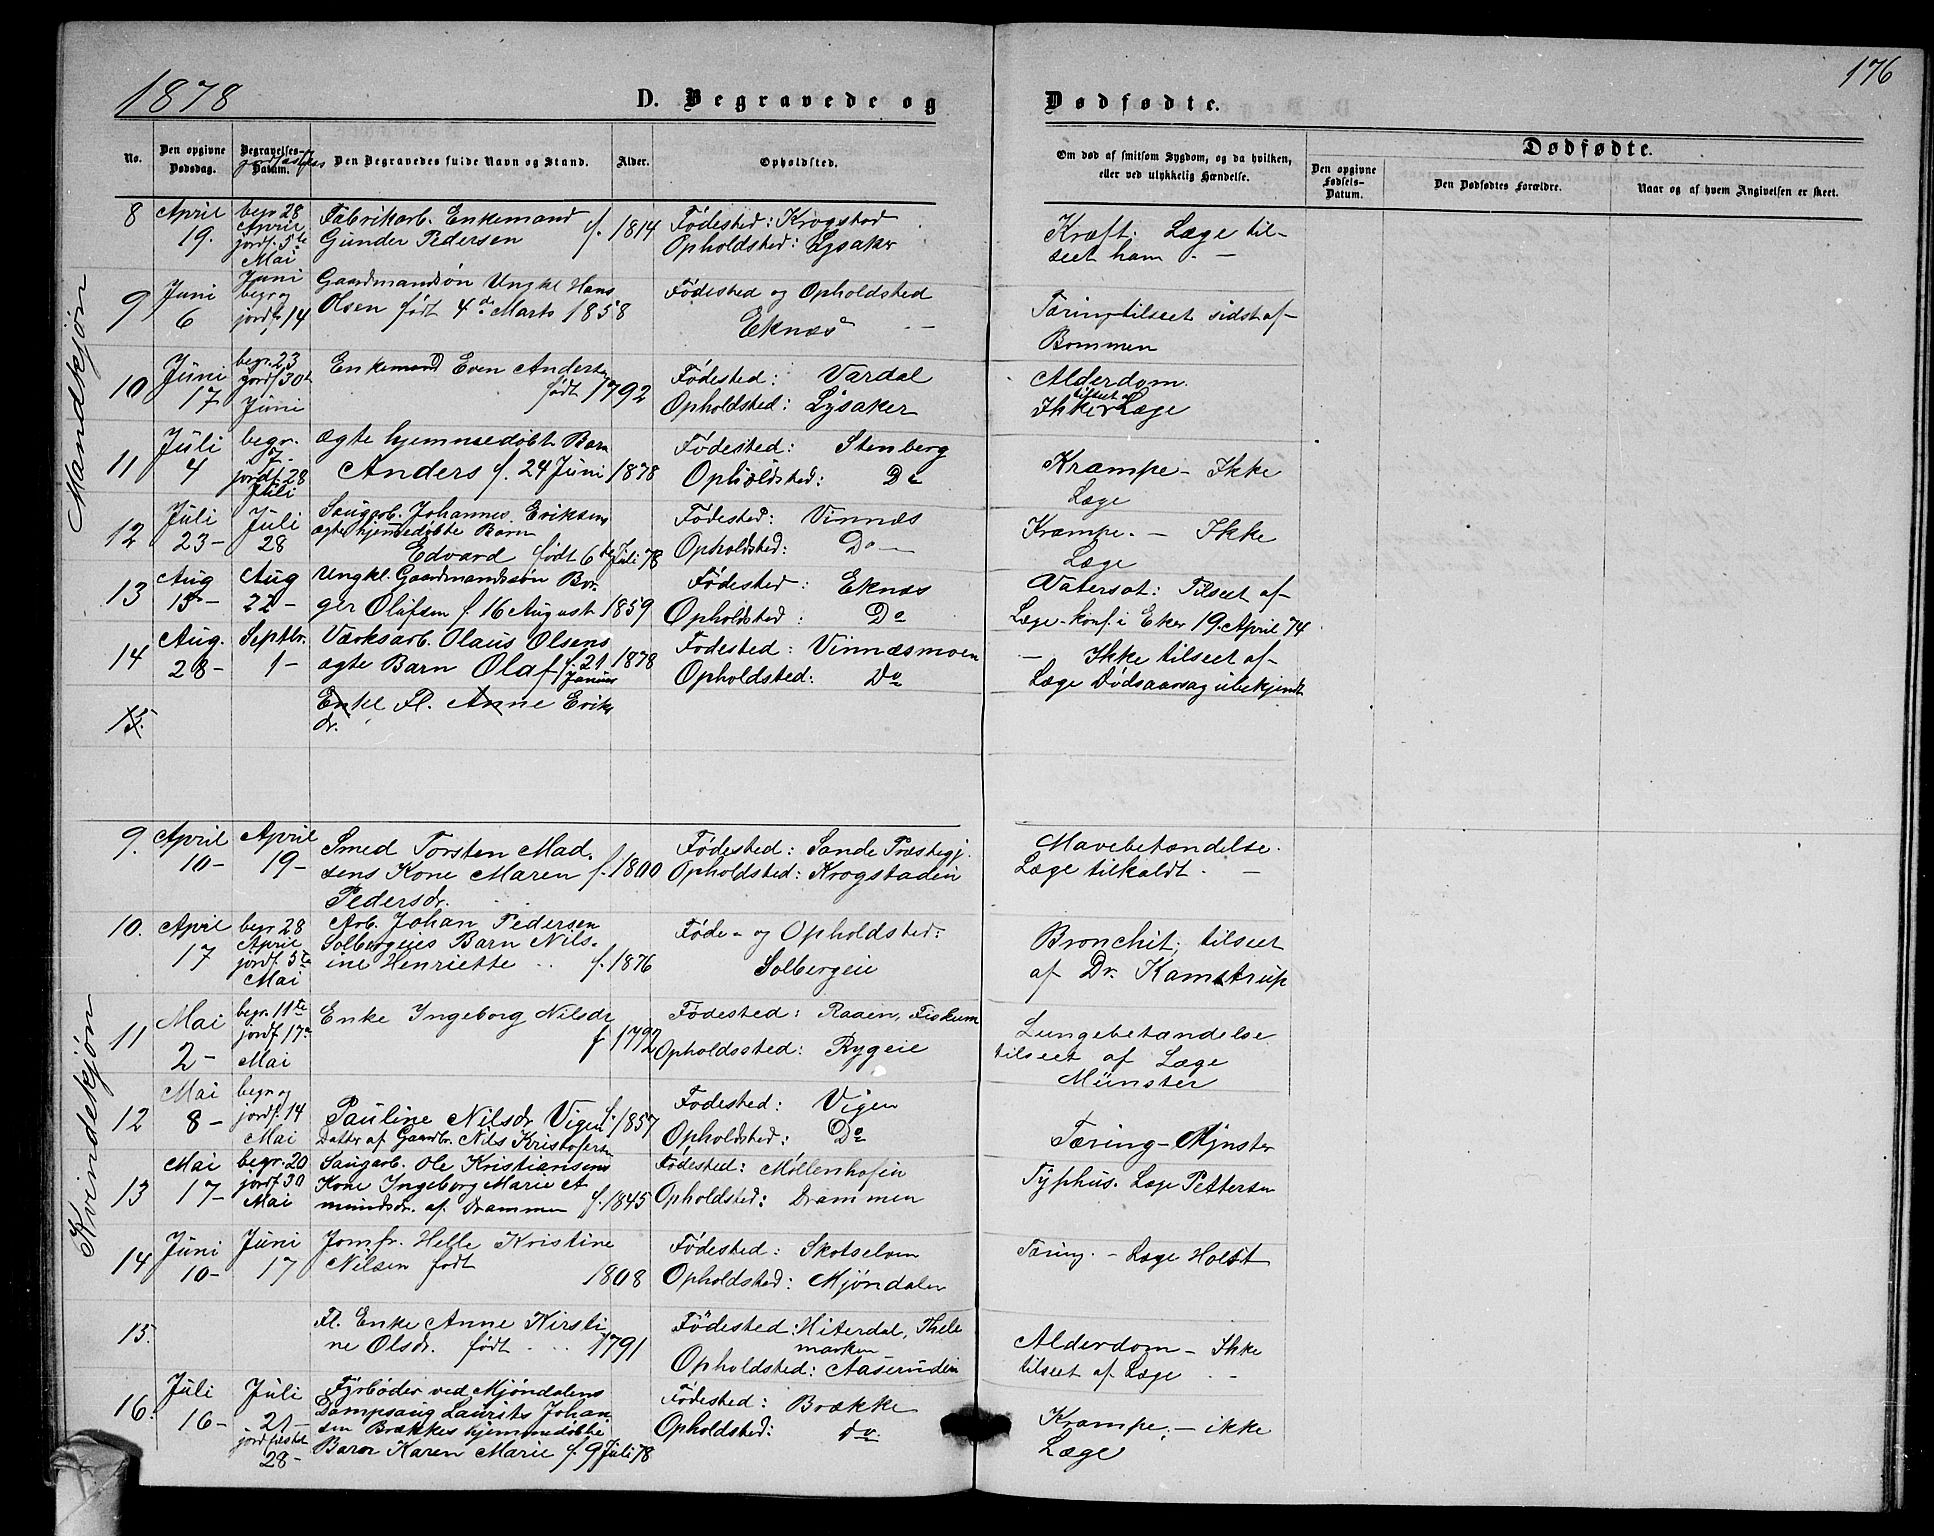 1878
D. Begravede og Dødfødte.
176
No.
Den opgivne Dødsdag.
Begravelses- jordfæstelses Datum.
Den Begravedes fulde Navn og Stand.
Alder.
Opholdsted.
Om død af smitsom Sygdom, og da hvilken, eller ved ulykkelig Hændelse.
Dødfødte.
Den opgivne Fødsels-Datum.
Den Dødfødtes Forældre.
Naar og af hvem Angivelsen er skeet.
Mandkjøn
8 April 19. begr 28 April jordf. 5te Mai
Fabrikarb. Enkemand
Gunder Pedersen f. 1814
Fødested: Krogstad
Opholdsted: Lysaker
Kræft: Læge til-
seet ham. —
9 Juni 6 Juni begr og jordf. 14
Gaardmandsøn Ungkl Hans
Olsen født 4de Marts 1858
Fødested og Opholdsted
Eknæs —
Tæring tilseet sidst af
Bommen
10 Juni 17 begr. 23 jordf 30t Juni
Enkemand Even Anders
født 1792
Fødested: Vardal
Opholdsted: Lysaker
Alderdom.
Ikke tilseet af Læge
11 Juli 4 begr. 7 jordf. 28 Juli
ægte hjemmedøbt Barn
Anders f. 24 Juni 1878
Fødested: Stenberg
Opholdsted: Do
Krampe - Ikke
Læge
12 Juli 23 - Juli 28
Saugarb. Johannes Eriksens
ægte hjemmedøbte Barn
Edvard født 6te Juli 78
Fødested: Vinnæs
Opholdsted: Do —
Krampe. - Ikke
Læge
13 Aug 15 - Aug 22 -
Ungkl. Gaardmandssøn Bor-
ger Olafsen f. 16 August 1859
Fødested: Eknæs
Opholdsted: Do
Vatersot: Tilseet af
Læge - konf. i Eker 19. April 74
14 Aug. 28 - Septbr. 1 -
Værksarb. Olaus Olsens
ægte Barn Olaf f. 21 Januar 1878
Fødested: Vinnæsmoen
Opholdsted: Do
- Ikke tilseet af
Læge Dødsaarsag ubekjendt
15.
Enke Fl. Anne Eriks
dr.
Kvindekjøn
9. April 10 - April 19 -
Smed Torsten Mad.
sens Kone Maren f. 1800
Pedersdr.
Fødested: Sande Præstegj.
Opholdsted: Krogstadeie
Mavebetændelse.
Læge tilkaldt. —
10. April 17 begr 28 April jordf. 5te Mai
Arb. Johan Pedersen
Solbergeies Barn Nils-
ine Henriette .. f. 1876
Føde - og Opholdsted:
Solbergeie
Bronchit; tilseet
af Dr. Kamstrup
11 Mai 2 - begr. 11te jordf. 17de Mai
Enke Ingeborg Nilsdr
f 1792
Fødested: Raaen, Fiskum
Opholdssted: Rygeie
Lungebetændelse
tilseet af Læge
Münster
12 Mai 8 - begr og jordf. 14 Mai
Pauline Nilsdr Vigen f. 1857
Datter af Gaardbr. Nils Kristofersen
Fødested: Vigen
Opholdsted: Do
Tæring - Mynster
13 Mai 17 - begr. 20 jordf. 30 Mai
Saugarb. Ole Kristiansens
Kone Ingeborg Marie A
mundsdr. af Drammen f. 1845
Fødested: Møllenhofen
Opholdsted: Drammen
Typhus. Læge Pettersen
14 Juni 10 - Juni 17
Jomfr. Helle Kristine
Nilsen født 1808
Fødested: Skotselven
Opholdsted: Mjøndalen
Tæring. - Læge Holst
15.
Fl. Enke Anne Kirsti
ne Olsdr. født .. 1791
Fødested: Hiterdal, Thele
marken
Opholdsted: Aaserudeie
Alderdom - Ikke
tilseet af Læge . -
16. Juli 16 - Juli 21 - jordfæstet 28 -
Fyrbøder ved Mjøndalens
Dampsaug Laurits Johan
sen Brækkes hjemmedøbte
Barn Karen Marie f. 9 Juli 78
Fødested: Brække
Opholdsted: do
Krampe; - ikke
Læge